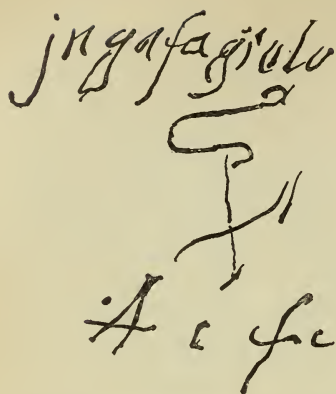 jngnfagiolo
A c fc